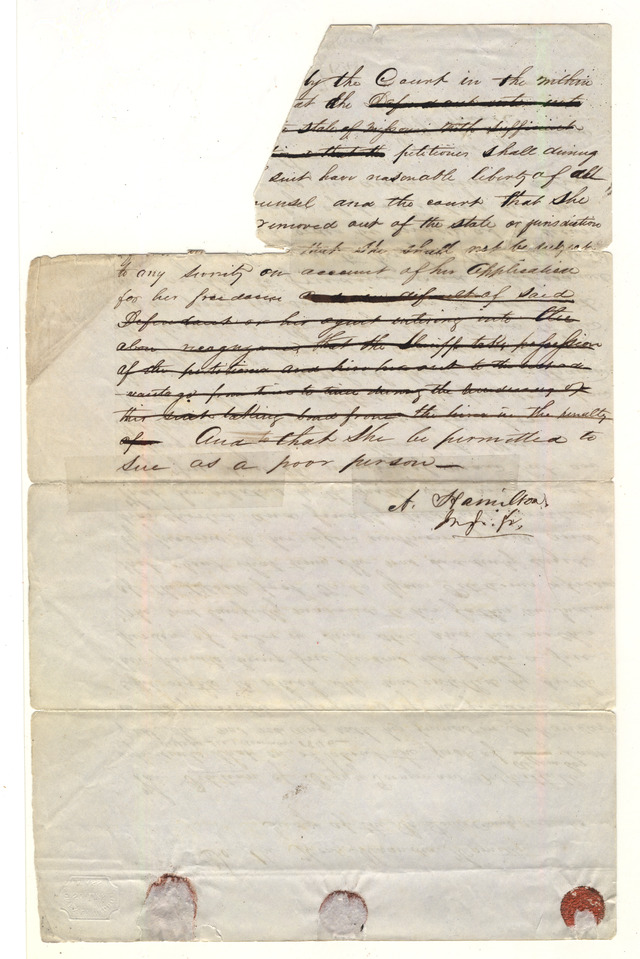 by the Court in the within
at the Defendant enter into
state of Missouri with sufficient
that the petitioner shall during
suit have reasonable liberty of att
unsel and the court that she
removed out of the state or jurisdiction
that she shall not be subject
to any severity on account of her application
for her freedom and in default of said
Defendant or his agent entering into the
above recognizance that the Sheriff take possession
of the petitioner and hire her out to the best ad
vantage from time to time during the pendency of
this suit taking bond from the hirer in the penalty
of And that she be permitted to
sue as a poor person
A. Hamilton